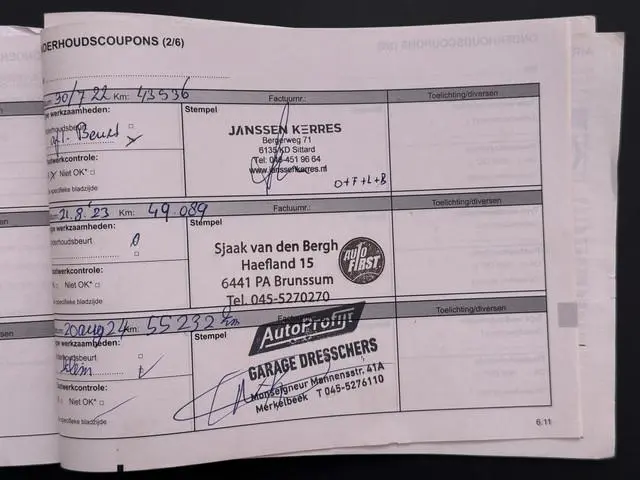 DERHOUDSCOUPONS (2/6)
30/7 22 Km: 43536 Factuurnr.: Toelichting/diversen
pe werkzaamheden: Stempel
derhoudsbeurt
Beurt
JANSSEN KERRES
Bergerweg 71
6135 KD Sittard
Tel: 046-451 96 64
www.janssenkerres.nl
O+F+L+B
atwerkcontrole:
Niet OK*
e specifieke bladzijde
21.8.'23 Km: 49.089 Factuurnr.: Toelichting/diversen
pe werkzaamheden: Stempel
derhoudsbeurt
Sjaak van den Bergh
Haefland 15
6441 PA Brunssum
Tel. 045-5270270
AUTO FIRST
atwerkcontrole:
Niet OK*
e specifieke bladzijde
20 aug 24 Km: 55232 km Toelichting/diversen
pe werkzaamheden: Stempel
derhoudsbeurt
klein
AutoProfijt
GARAGE DRESSCHERS
Monseigneur Mannensstr. 41A
Merkelbeek T 045-5276110
atwerkcontrole:
Niet OK*
e specifieke bladzijde
6.11